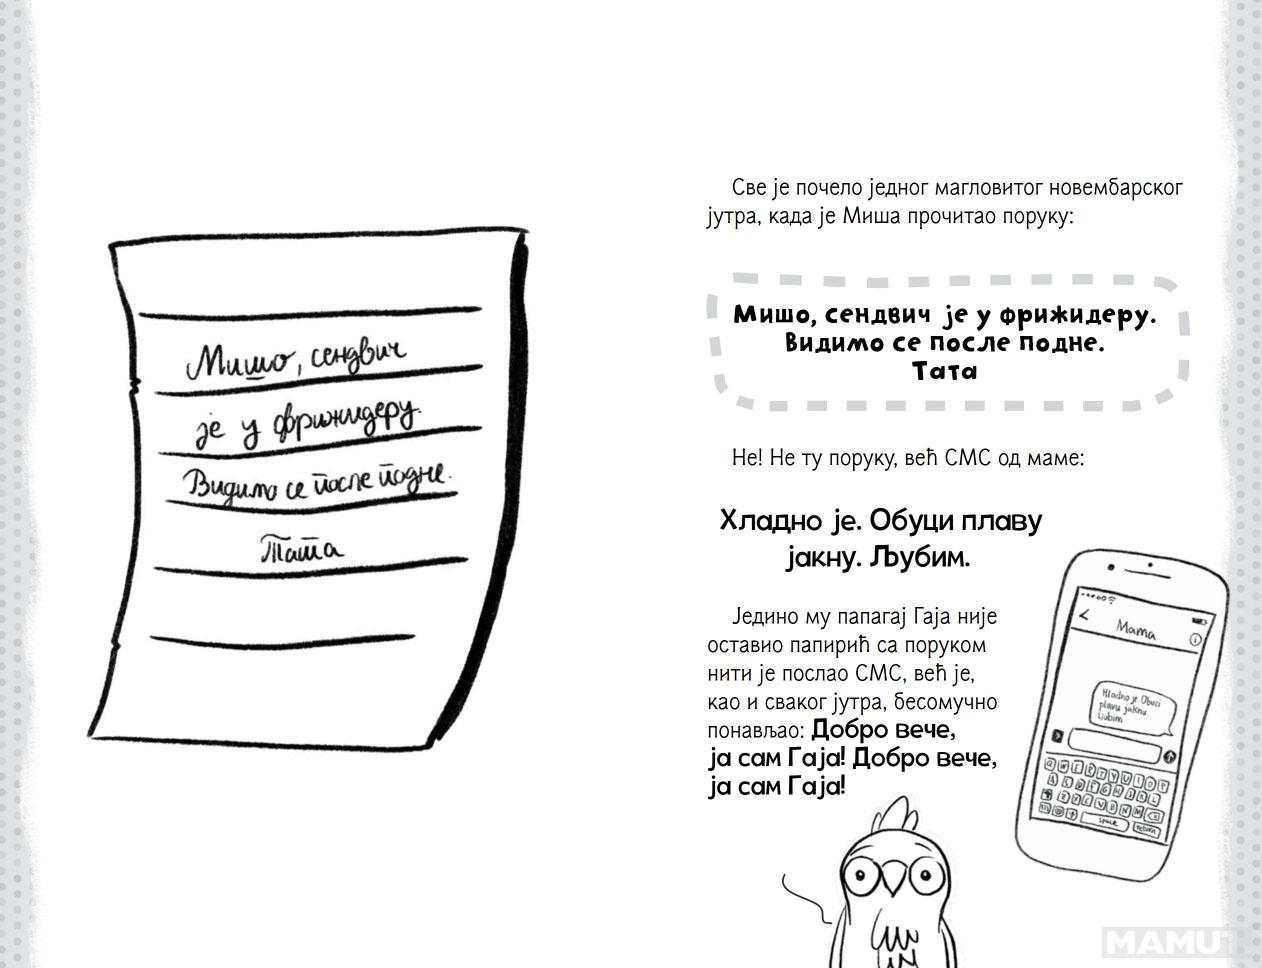 Мишо, сендвич
је у фрижидеру.
Видимо се после подне.
Тата
Све је почело једног магловитог новембарског
јутра, када је Миша прочитао поруку:
Мишо, сендвич је у фрижидеру.
Видимо се после подне.
Тата
Не! Не ту поруку, већ СМС од маме:
Хладно је. Обуци плаву
јакну. Љубим.
Једино му папагај Гаја није
оставио папирић са поруком
нити је послао СМС, већ је,
као и сваког јутра, бесомучно
понављао: Добро вече,
ја сам Гаја! Добро вече,
ја сам Гаја!
Mama
Hladno je Obuci
plavu jaknu
Ljubim
space
return
MAMUT